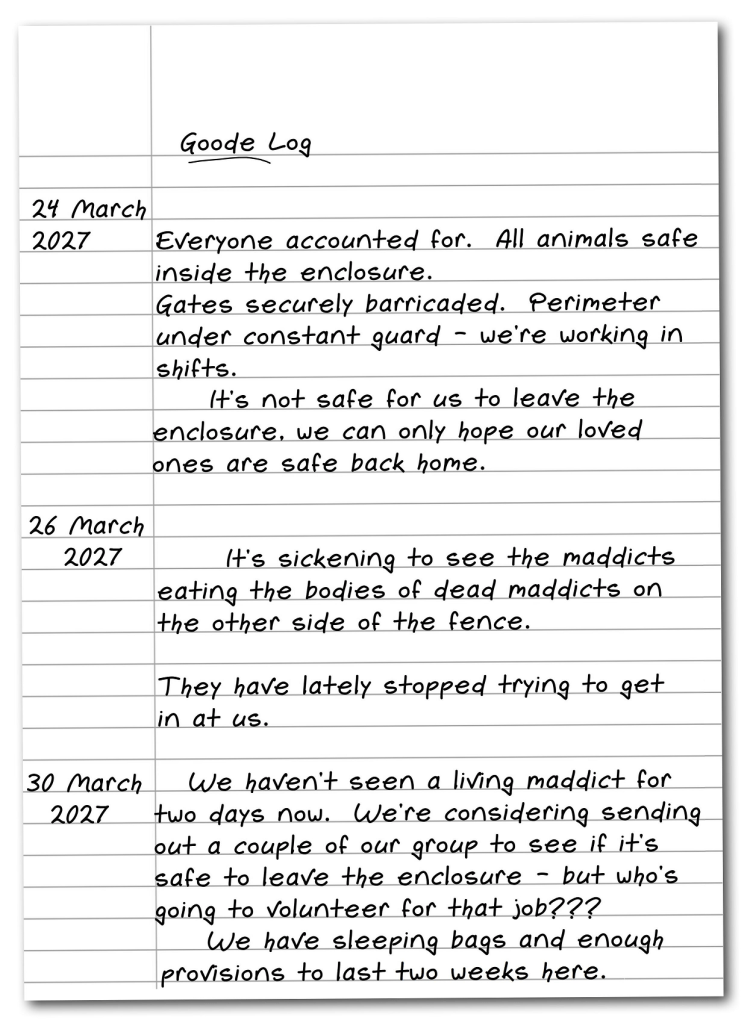 Goode Log
24 March
2027 Everyone accounted for. All animals safe
inside the enclosure.
Gates securely barricaded. Perimeter
under constant guard - we're working in
shifts.
It's not safe for us to leave the
enclosure, we can only hope our loved
ones are safe back home.
26 March
2027 It's sickening to see the maddicts
eating the bodies of dead maddicts on
the other side of the fence.
They have lately stopped trying to get
in at us.
30 March We haven't seen a living maddict for
2027 two days now. We're considering sending
out a couple of our group to see if it's
safe to leave the enclosure - but who's
going to volunteer for that job???
We have sleeping bags and enough
provisions to last two weeks here.